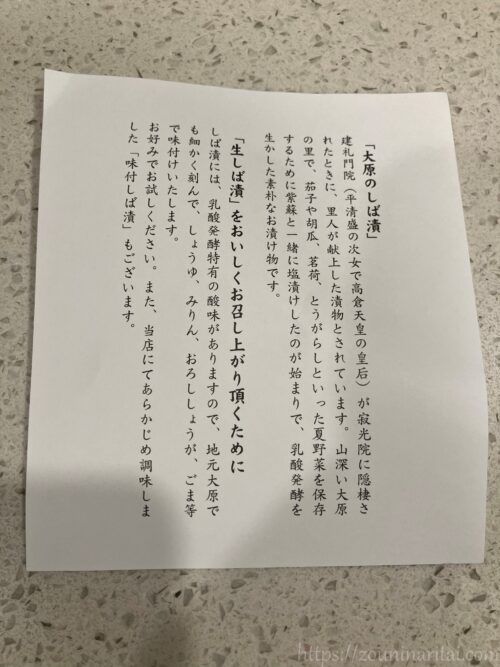 「大原のしば漬」
建礼門院（平清盛の次女で高倉天皇の皇后）が寂光院に隠棲さ
れたときに、里人が献上した漬物とされています。山深い大原
の里で、茄子や胡瓜、茗荷、とうがらしといった夏野菜を保存
するために紫蘇と一緒に塩漬けしたのが始まりで、乳酸発酵を
生かした素朴なお漬け物です。
「生しば漬」をおいしくお召し上がり頂くために
しば漬には、乳酸発酵特有の酸味がありますので、地元大原で
も細かく刻んで、しょうゆ、みりん、おろししょうが、ごま等
で味付けいたします。
お好みでお試しください。また、当店にてあらかじめ調味しま
した「味付しば漬」もございます。
https://zouninaritai.com